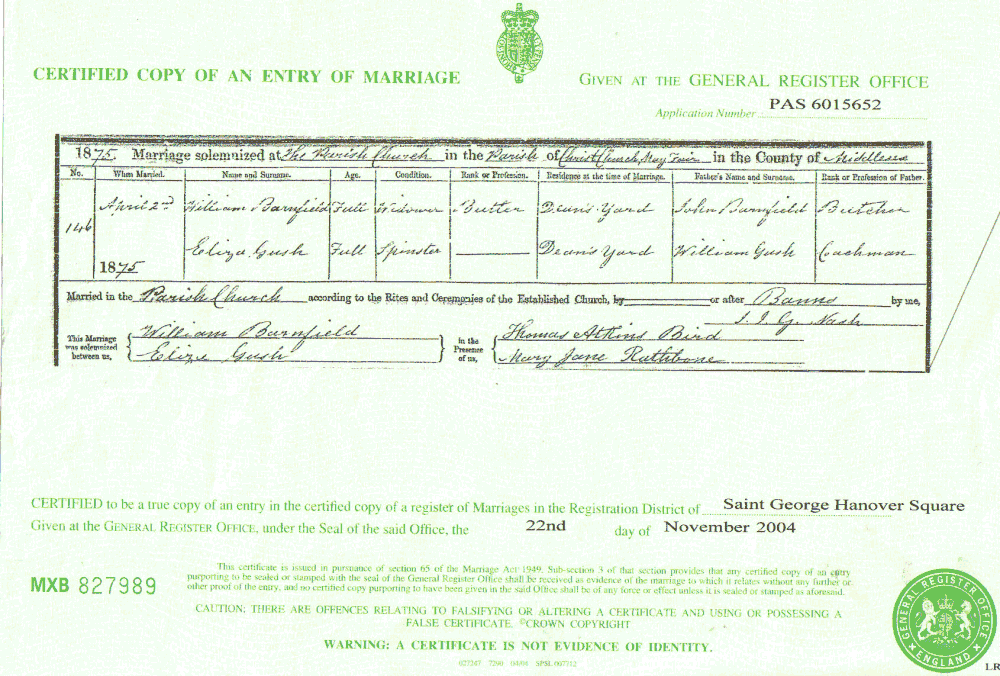 CERTIFIED COPY OF AN ENTRY OF MARRIAGE
GIVEN AT THE GENERAL REGISTER OFFICE
Application Number PAS 6015652
1875. Marriage solemnized at The Parish Church in the Parish of Christ Church May Fair in the County of Middlesex
No. When Married. Name and Surname. Age. Condition. Rank or Profession. Residence at the time of Marriage. Father's Name and Surname. Rank or Profession of Father.
146 April 2nd William Barnfield Full Widower Butler Dean's Yard John Barnfield Butcher
Eliza Gush Full Spinster Dean's Yard William Gush Coachman
1875
Married in the Parish Church according to the Rites and Ceremonies of the Established Church, by or after Banns by me,
J. J. G. Nash
This Marriage was solemnized between us, William Barnfield
Eliza Gush
in the Presence of us, Thomas Atkins Bird
Mary Jane Rathbone
CERTIFIED to be a true copy of an entry in the certified copy of a register of Marriages in the Registration District of Saint George Hanover Square
Given at the GENERAL REGISTER OFFICE, under the Seal of the said Office, the 22nd day of November 2004
MXB 827989
This certificate is issued in pursuance of section 65 of the Marriage Act 1949. Sub-section 3 of that section provides that any certified copy of an entry
purporting to be sealed or stamped with the seal of the General Register Office shall be received as evidence of the marriage to which it relates without any further or
other proof of the entry, and no certified copy purporting to have been given in the said Office shall be of any force or effect unless it is sealed or stamped as aforesaid.
CAUTION: THERE ARE OFFENCES RELATING TO FALSIFYING OR ALTERING A CERTIFICATE AND USING OR POSSESSING A
FALSE CERTIFICATE. ©CROWN COPYRIGHT
WARNING: A CERTIFICATE IS NOT EVIDENCE OF IDENTITY.
GENERAL REGISTER OFFICE
ENGLAND
LR